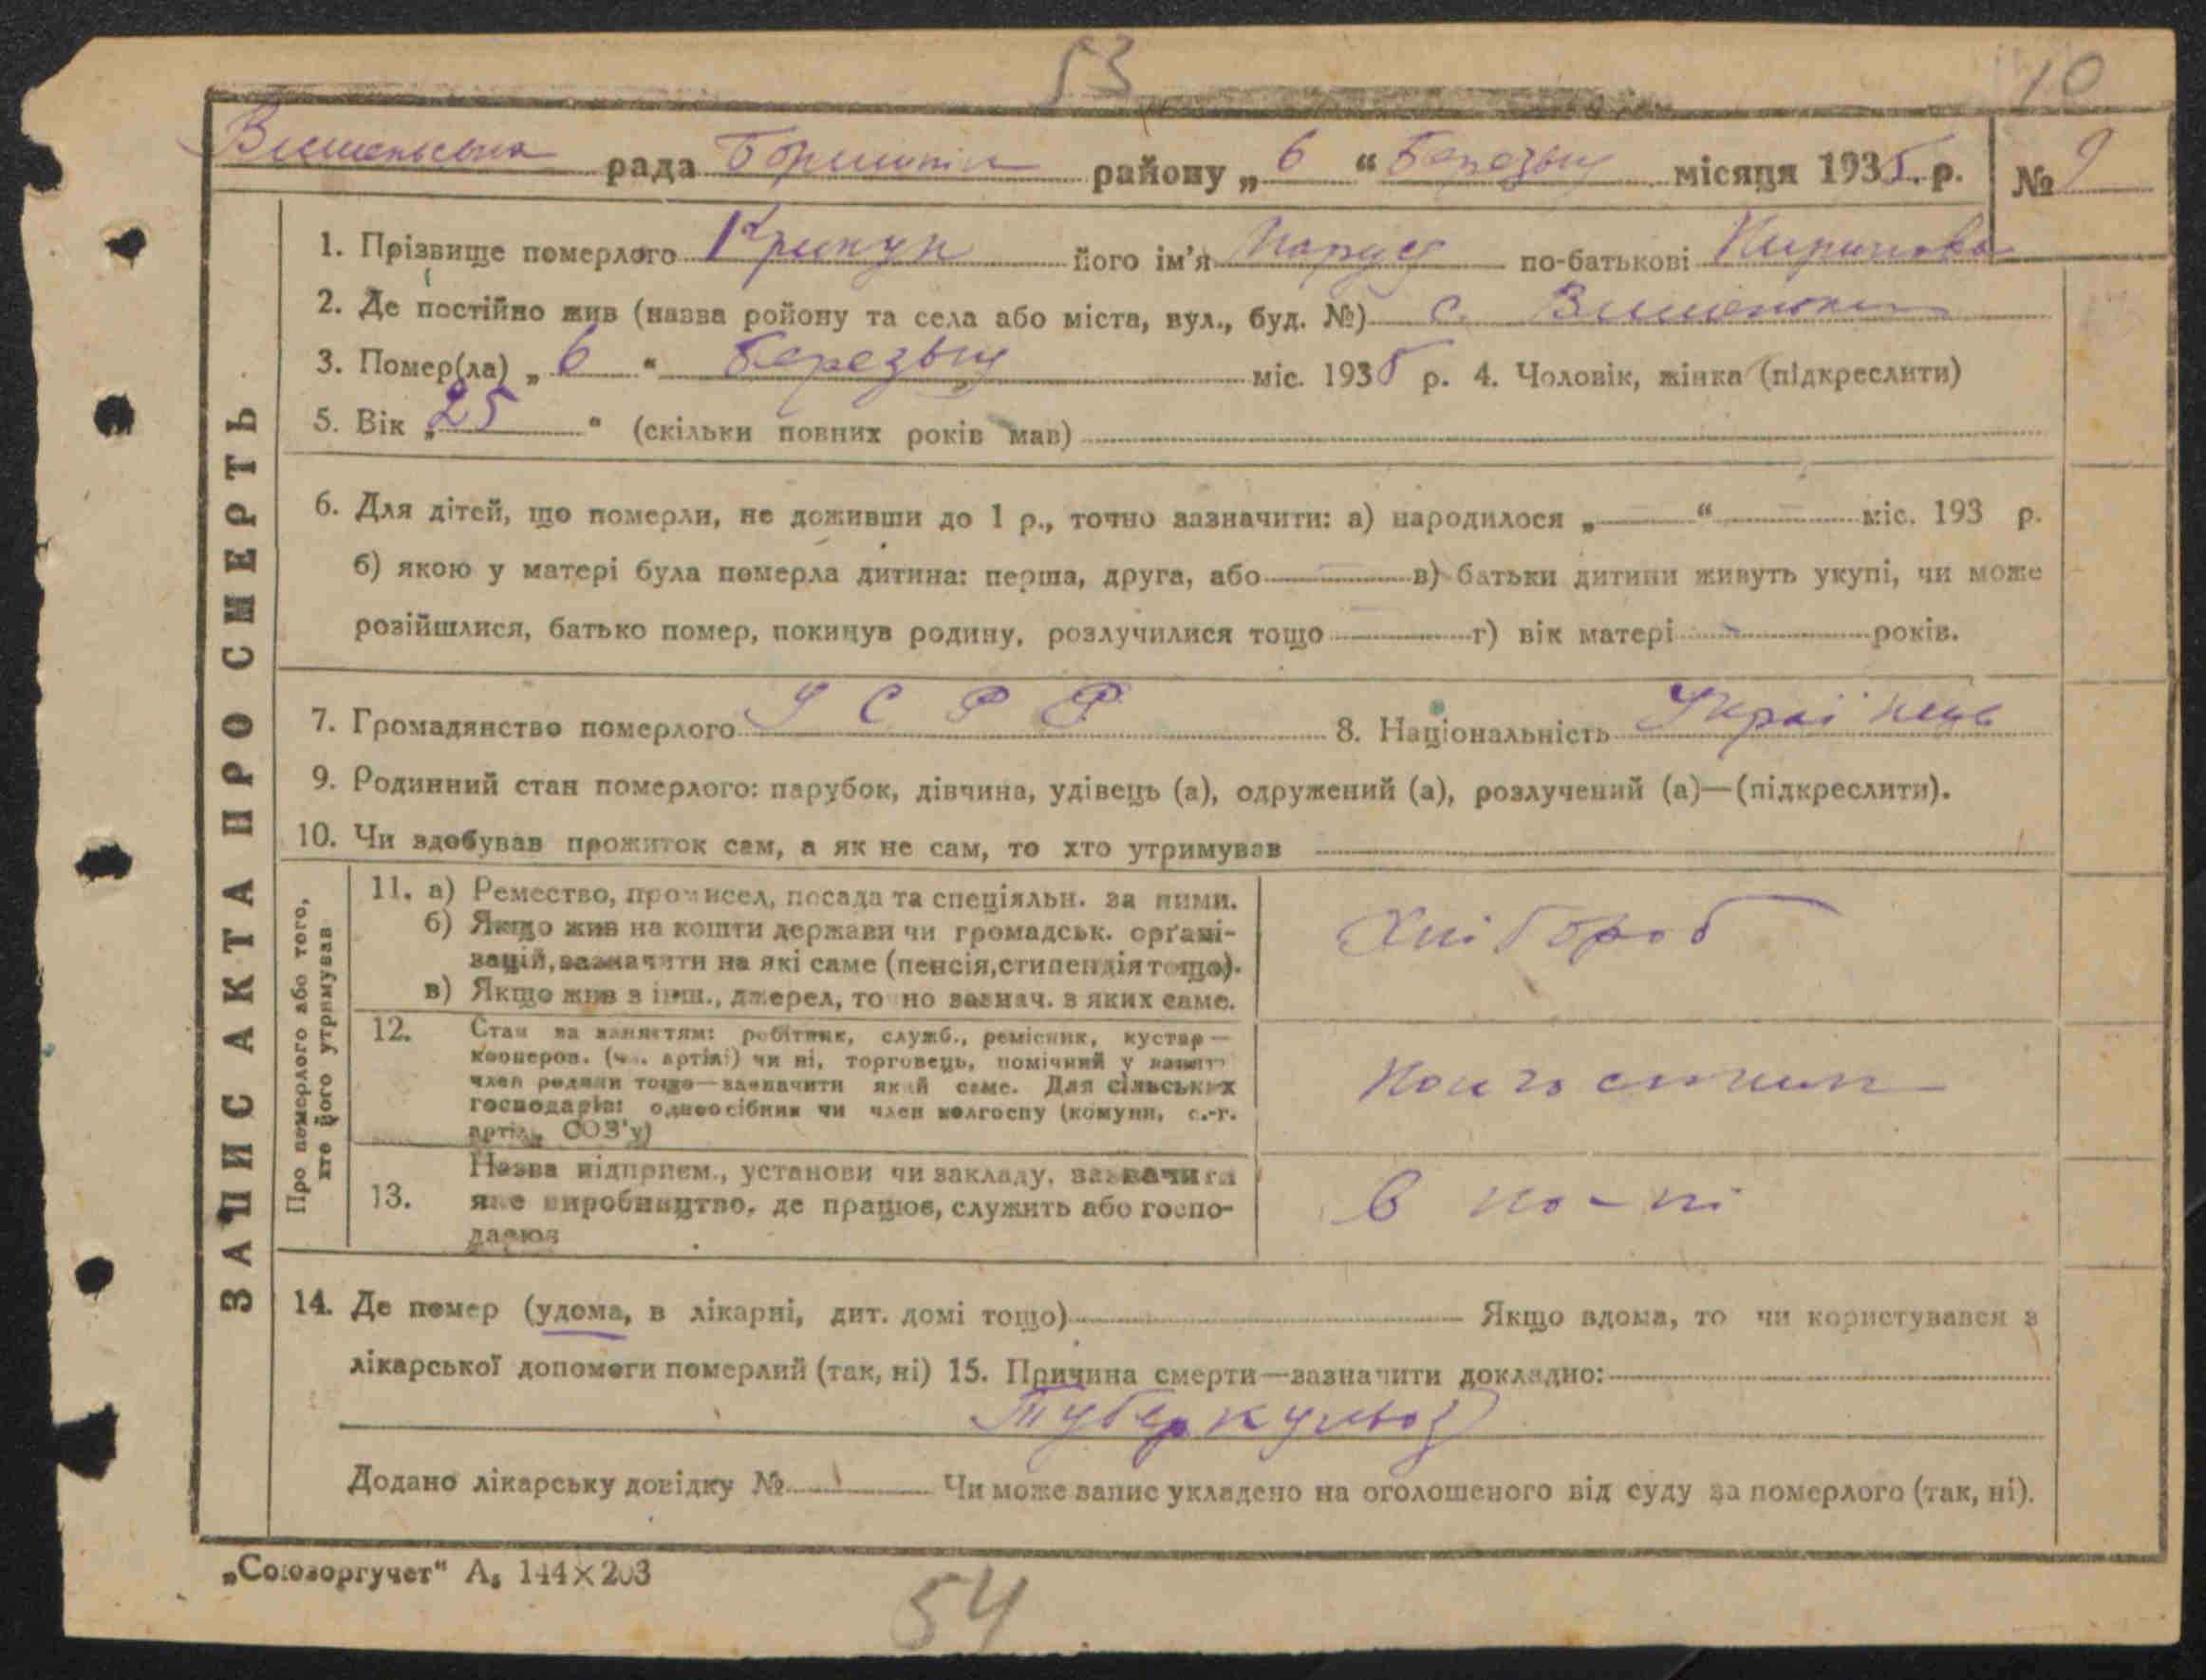 53
10
Вишенська рада Бориспіль району „ 6 “ Березня місяця 1935. р. № 9
ЗАПИС АКТА ПРО СМЕРТЬ
1. Прізвище померлого Крикун його ім'я Маруся по-батькові
2. Де постійно жив (назва ройону та села або міста, вул., буд. №) с. Вишеньки
3. Помер(ла) „ 6 “ Березня міс. 1935 р. 4. Чоловік, жінка (підкреслити)
5. Вік „ 25 “ (скільки повних років мав)
6. Для дітей, що померли, не доживши до 1 р., точно зазначити: а) народилося „ “ міс. 193 р.
б) якою у матері була померла дитина: перша, друга, або в) батьки дитини живуть укупі, чи може
розійшлися, батько помер, покинув родину, розлучилися тощо г) вік матері років.
7. Громадянство померлого УСРР 8. Національність Українець
9. Родинний стан померлого: парубок, дівчина, удівець (а), одружений (а), розлучений (а)—(підкреслити).
10. Чи здобував прожиток сам, а як не сам, то хто утримував
Про померлого або того,
хто його утримував
11. а) Ремество, промисел, посада та спеціяльн. за ними.
б) Якщо жив на кошти держави чи громадськ. орґані-
зацій, зазначити на які саме (пенсія, стипендія тощо).
в) Якщо жив з інш., джерел, точно зазнач. з яких саме.
Хлібороб
12. Стан за заняттям: робітник, служб., ремісник, кустар—
кооперов. (чл. артілі) чи ні, торговець, помічний у занятт
член родини тощо—зазначити який саме. Для сільських
господарів: одноосібник чи член колгоспу (комуни, с.-г.
артіл., СОЗ'у)
Колгоспник
13. Назва підприєм., установи чи закладу, зазначити
яке виробництво, де працює, служить або госпо-
дарює
в к-пі
14. Де помер (удома, в лікарні, дит. домі тощо) Якщо вдома, то чи користувався з
лікарської допомоги померлий (так, ні) 15. Причина смерти—зазначити докладно:
Туберкульоз
Додано лікарську довідку № Чи може запис укладено на оголошеного від суду за померлого (так, ні).
„Союзоргучет“ А₅ 144×203
54